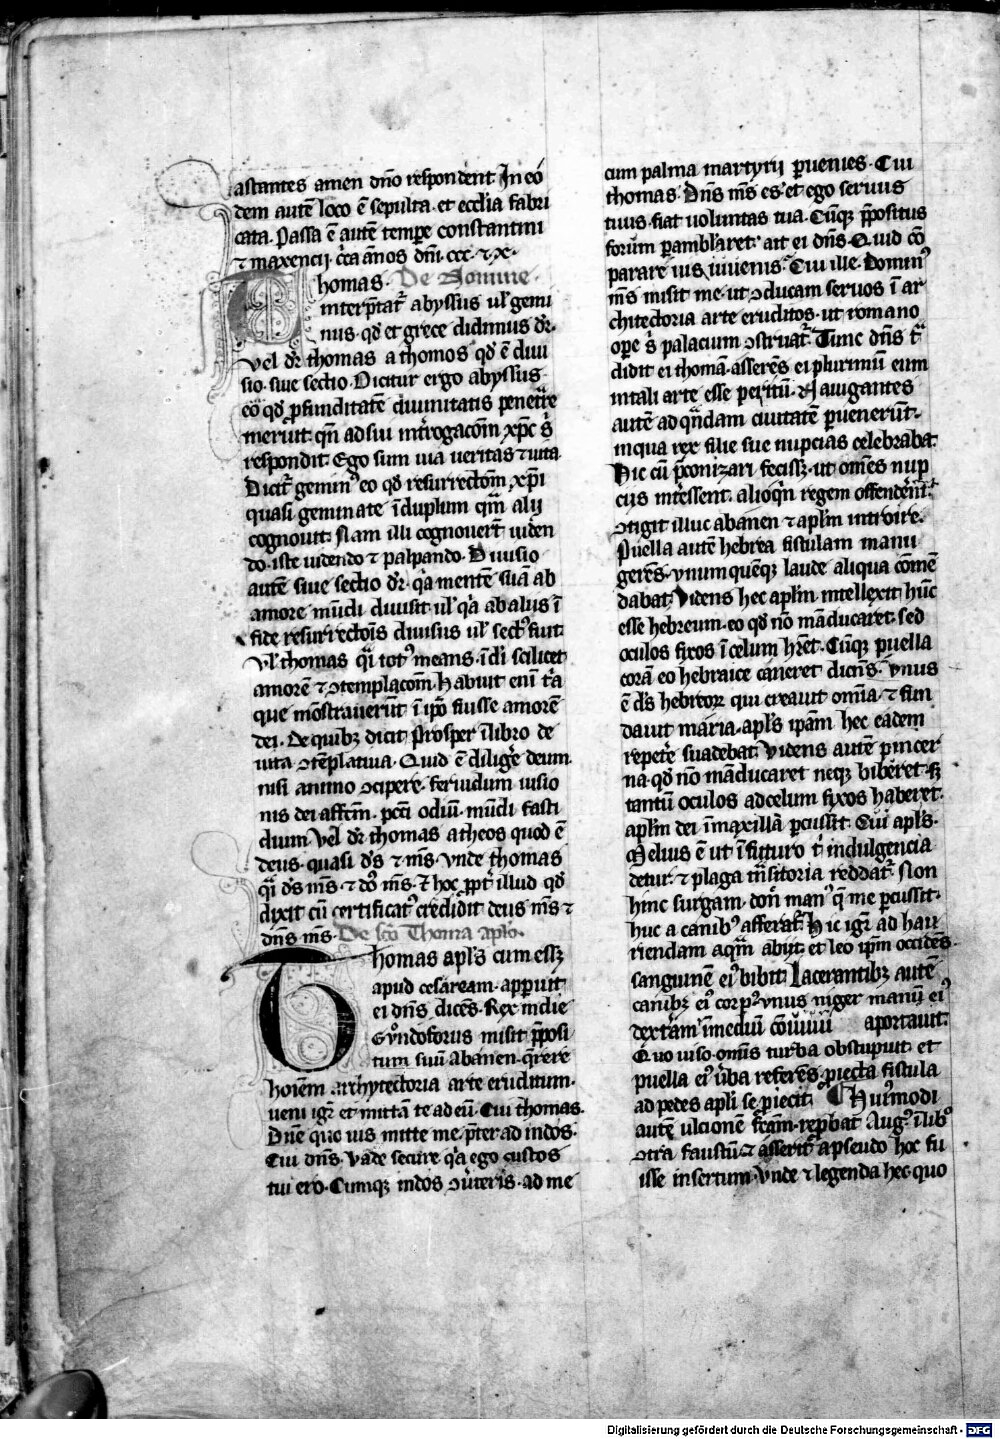 astantes amen dn̄o respondent. In eō
dem autē loco ē sepulta. et ecclīa fabri
cata. Passa ē autē tempe constantini
⁊ maxencij. c̄ca ān̄os dn̄i. ccc. ⁊ x.
Thomas. De Nomine.
interp̄tat᷑ abyssus ul' gemi
nus. qd̓ et grece didimus dr̄.
Vel dr̄ thomas a thomos qd̓ ē diui
sio. siue sectio. Dicitur ergo abyssus
eo qd̓ ꝓfunditatē diuinitatis penetr̄e
meruit. qn̄ ad sui int̓rogacōm xp̄c s̓
respondit. Ego sum uia ueritas ⁊ uita.
Dicit᷑ gemin᷒ eo qd̓ resurrectōm xp̄i
quasi geminate in duplum qm̄ alij
cognouit. Nam illi cognouert̄ uiden
do. iste uidendo ⁊ palpando. Diuisio
autē siue sectio dr̄. qꝛ mentē suā ab
amore mūdi diuisit. ul' qꝛ ab alijs ī
fide resurrectōis diuisus ul' sect᷒ fuit.
Vl' thomas q̄i tot᷒ means. i. ī di scilicet
amorē ⁊ ꝯtemplacōm. Habuit eni tr̄a
que mōstrauerūt ī ip̄o fuisse amorē
dei. De quibꝫ dicit Prosper ī libro de
uita ꝯtēplatiua. Quid ē diligre deum.
nisi animo ꝯcipere. feruidum uisio
nis dei affcm̄. pccī odiū. mūdi fasti
dium. Vel dr̄ thomas a theos quod ē
deus. quasi dꝰs ⁊ mꝰs. vnde thomas
q̄i dꝰs mꝰs. ⁊ do᷒ mꝰs. ⁊ hoc ꝓpt̓ illud qd̓
dixit cū certificat᷒ credidit deus mꝰs ⁊
dn̄s mꝰs. De sc̄o Thoma aplo.
Thomas apl̄s cum essꝫ
apud cesaream. apparuit
ei dn̄s dicēs. Rex indie
Gundoforus misit p̄posi
tum suū Abanen. q̄rere
hoīem archytectoria arte eruditum.
ueni igr̄ et mittā te ad eū. Cui thomas.
Dn̄e quo uis mitte me. p̄ter ad indos.
Cui dn̄s. Vade secure qꝛ ego custos
tui ero. Cumqꝫ indos ꝯu̓teris. ad me
cum palma martyrij ꝑuenies. Cui
thomas. Dn̄s mꝰs es et ego seruus
tuus. fiat uoluntas tua. Cūqꝫ p̄positus
forum ꝑambl'aret. ait ei dn̄s. Quid cō
parare uis iuuenis. Cui ille. Domin᷒
mꝰs misit me. ut ꝯducam seruos ī ar
chitectoria arte eruditos. ut romano
oꝑe s̓ palacium ꝯstruāt᷑. Tunc dn̄s tͣ
didit ei thomā. asserēs ei plurimū eum
in tali arte esse peritū. Nauigantes
autē ad qͣndam ciuitatē ꝑuenerūt.
in qua rex filie sue nupcias celebrabat.
Hic cū p̄conizari fecissꝫ. ut om̄es nup
cijs int̓essent. alioqͥn regem offenderēt.
ꝯtigit illuc abanen ⁊ apl̄m introire.
Puella autē hebrea fistulam manu
gerēs. vnumquēqꝫ laude aliqua cōmē
dabat. Videns hec apl̄m. intellexit hūc
esse hebreum. eo qd̓ nō māducaret. sed
oculos fixos ī celum hr̄et. Cūqꝫ puella
corā eo hebraice caneret dicēs. vnus
ē dꝰs hebreoꝝ qui creauit om̄ia. ⁊ fun
dauit maria. apl̄s ip̄am hec eadem
repet̓e suadebat. Videns autē pincer
na. qd̓ nō māducaret neqꝫ biberet. sꝫ
tantū oculos ad celum fixos haberet.
apl̄m dei ī maxilla ꝑcussit. Cui apl̄s.
Melius ē ut ī futuro tͥ indulgencia
detur. ⁊ plaga trͣsitoria reddat᷑. Non
hinc surgam. donec man᷒ q̄ me ꝑcussit.
huc a canibꝫ afferat᷑. Hic igr̄ ad hau
riendam aqͣm abijt. et leo ip̄m occidēs.
sanguinē ei᷒ bibit. Lacerantibꝫ autē
canibꝫ ei᷒ corp᷒. vnus niger manū ei᷒
dextram ī mediū cōuiuiū aportauit.
Quo uiso. om̄is turba obstupuit. et
puella ei᷒ uerba referēs. ꝓiecta fistula
ad pedes apl̄i se ꝓiecit. Hui᷒modi
autē ulcionē fc̄am. rep̄bat Aug᷒. ī lib᷒
ꝯtra faustū. ⁊ asserit᷑ a pseudo hoc fu
isse insertum. Vnde ⁊ legenda hec quo